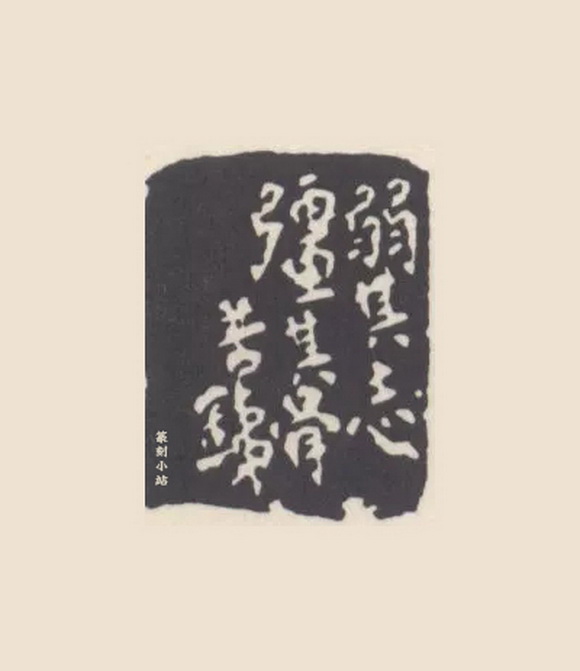 弱其志
彊其骨
苦鐵
篆刻小站